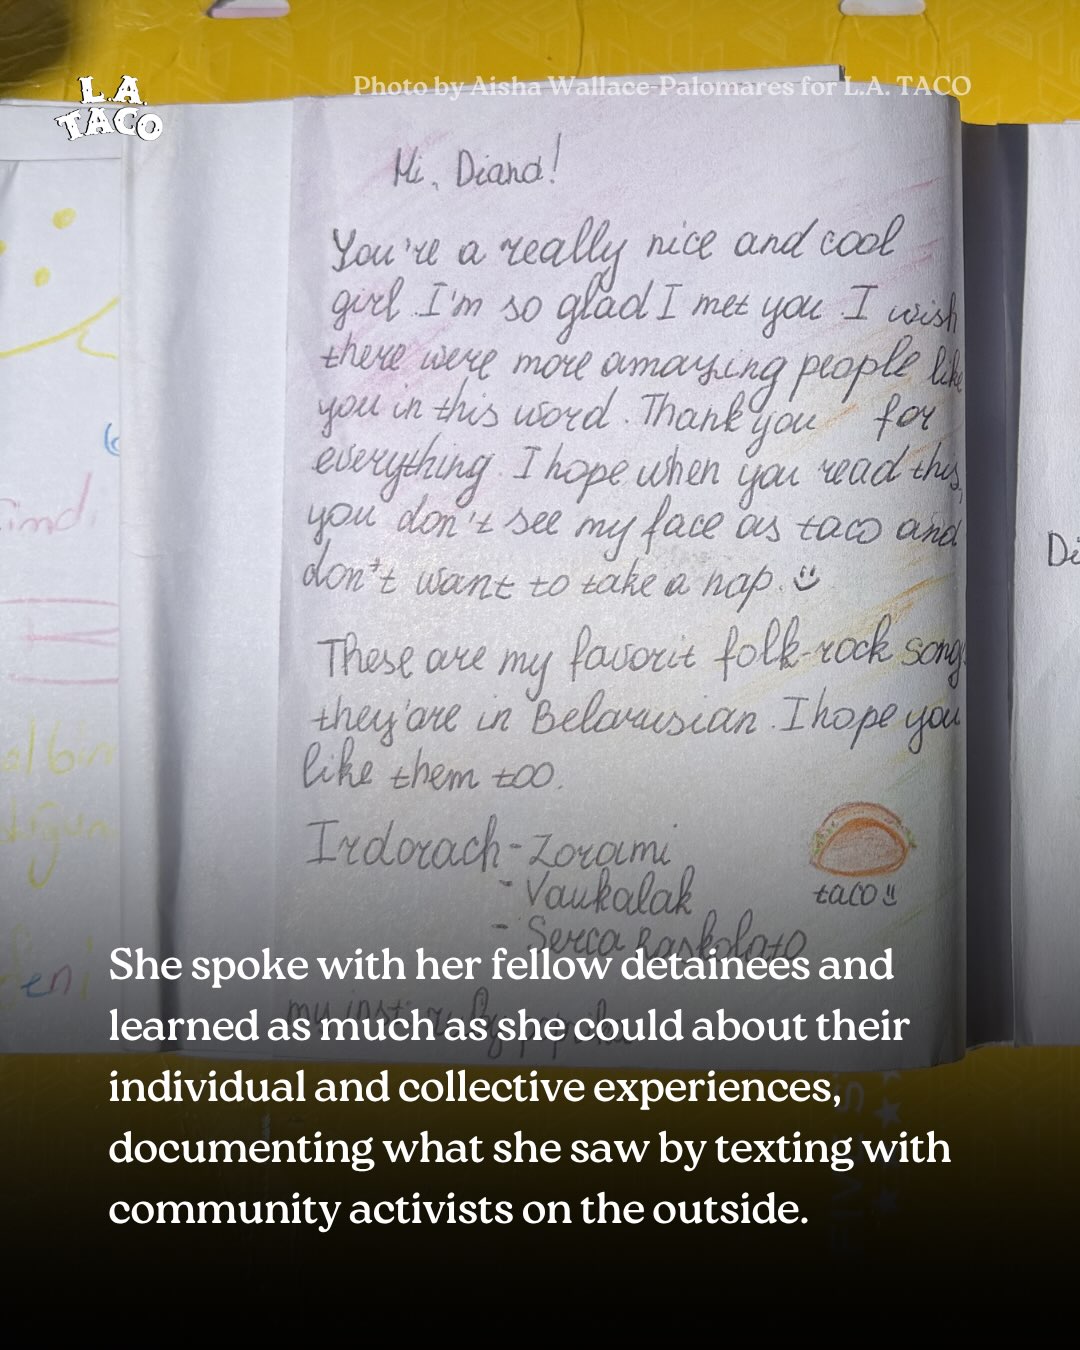 L.A.
TACO
Photo by Aisha Wallace-Palomares for L.A. TACO
Hi, Diana!
You're a really nice and cool
girl. I'm so glad I met you I wish
there were more amazing people like
you in this word. Thank you for
everything. I hope when you read this,
you don't see my face as taco and
don't want to take a nap.
These are my favorit folk-rock song
they'are in Belarusian. I hope you
like them too.
Irdorach - Zorami
- Vaukalak
- Serca Raskolato
taco
my inst
Di
She spoke with her fellow detainees and
learned as much as she could about their
individual and collective experiences,
documenting what she saw by texting with
community activists on the outside.